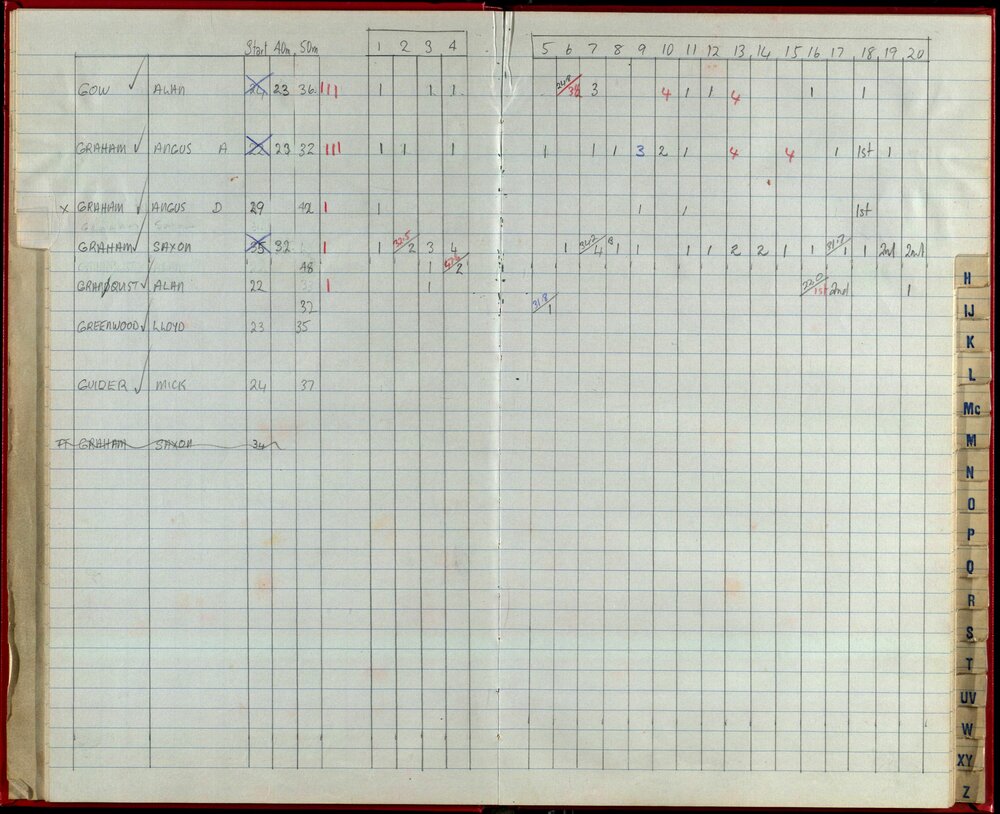 Start 40m. 50m 1 2 3 4 5 6 7 8 9 10 11 12 13 14 15 16 17 18 19 20
GOW ✓ ALAN 23 36 III 1 1 1 3 4 1 1 4 1 1
GRAHAM ✓ ANGUS A 23 32 III 1 1 1 1 1 1 3 2 1 4 4 1 1st 1
x GRAHAM ✓ ANGUS D 29 42 I 1 1 1 1st
GRAHAM ✓ SAXON 35 32 I 1 32.5/2 3 4 1 4 1 1 1 1 2 2 1 1 31.7/1 1 2nd 2nd
48 1 2
GRANQUIST ✓ ALAN 22 I 1 22.0/1st 2nd 1
32 31.8/1
GREENWOOD ✓ LLOYD 23 35
GUIDER ✓ MICK 24 37
GRAHAM SAXON 34
H
IJ
K
L
Mc
M
N
O
P
Q
R
S
T
UV
W
XY
Z